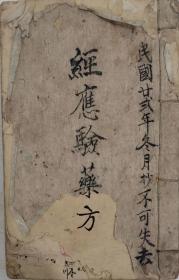 民國廿弍年冬月抄不可失去
經應驗藥方